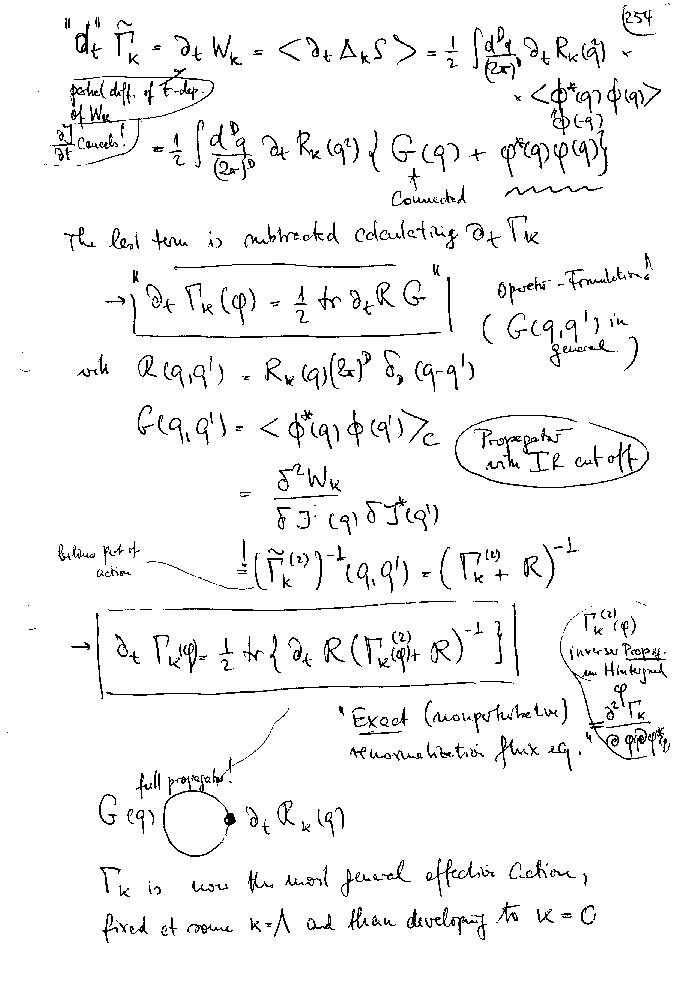 254
"d_t" Γ̃_k = ∂_t W_k = <∂_t Δ_k S> = 1/2 ∫ d^D q/(2π)^D ∂_t R_k(q²) ×
partial diff. of t-dep. of W_k
× <ϕ*(q) ϕ(q)>
ϕ(-q)
∂J/∂t Cancels!
= 1/2 ∫ d^D q/(2π)^D ∂_t R_k(q²) { G(q) + φ*(q)φ(q)}
↑ Connected
The last term is subtracted calculating ∂_t Γ_k
→ "∂_t Γ_k(φ) = 1/2 tr ∂_t R G"
Operator-Formulation!
(G(q,q') in general)
with R(q,q') = R_k(q)(2π)^D δ_D(q-q')
G(q,q') = <ϕ*(q) ϕ(q')>_c
Propagator with IR cutoff
= δ²W_k / δJ(q) δJ*(q')
action
= (Γ̃_k^(2))^-1 (q,q') = (Γ_k^(2) + R)^-1
→ ∂_t Γ_k(φ) = 1/2 tr{ ∂_t R (Γ_k^(2)(φ) + R)^-1 }
Γ_k^(2)(φ)
inverser Propag.
im Hintergrund
φ
= ∂²Γ_k / ∂φ ∂φ*
"Exact (nonperturbative)
renormalization flux eq."
full propagator!
G(q) ∂_t R_k(q)
Γ_k is now the most general effective action,
fixed at some k=Λ and than developing to k = 0